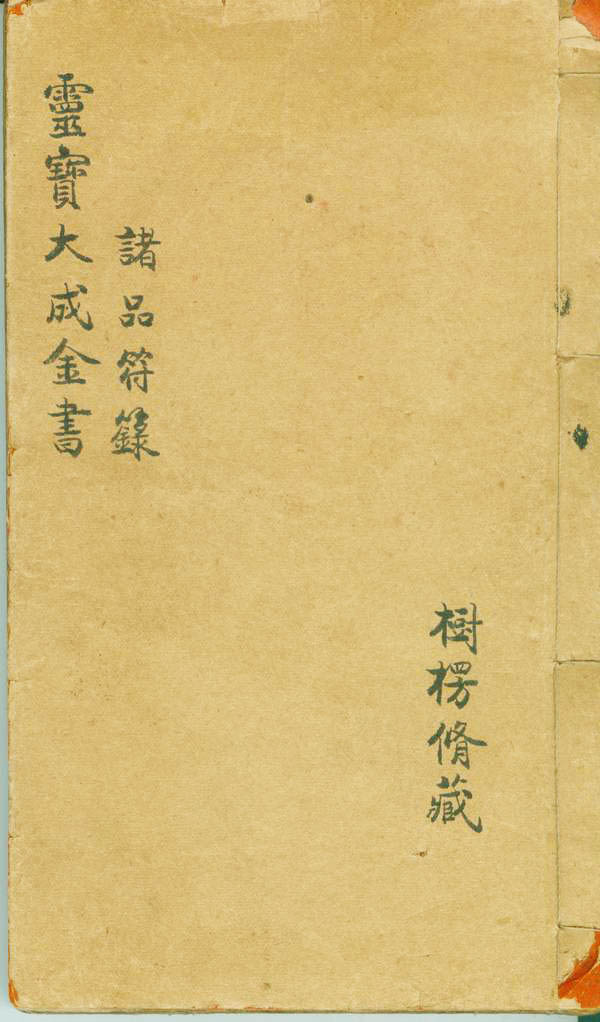 樹楞脩藏
諸品符籙
靈寶大成金書